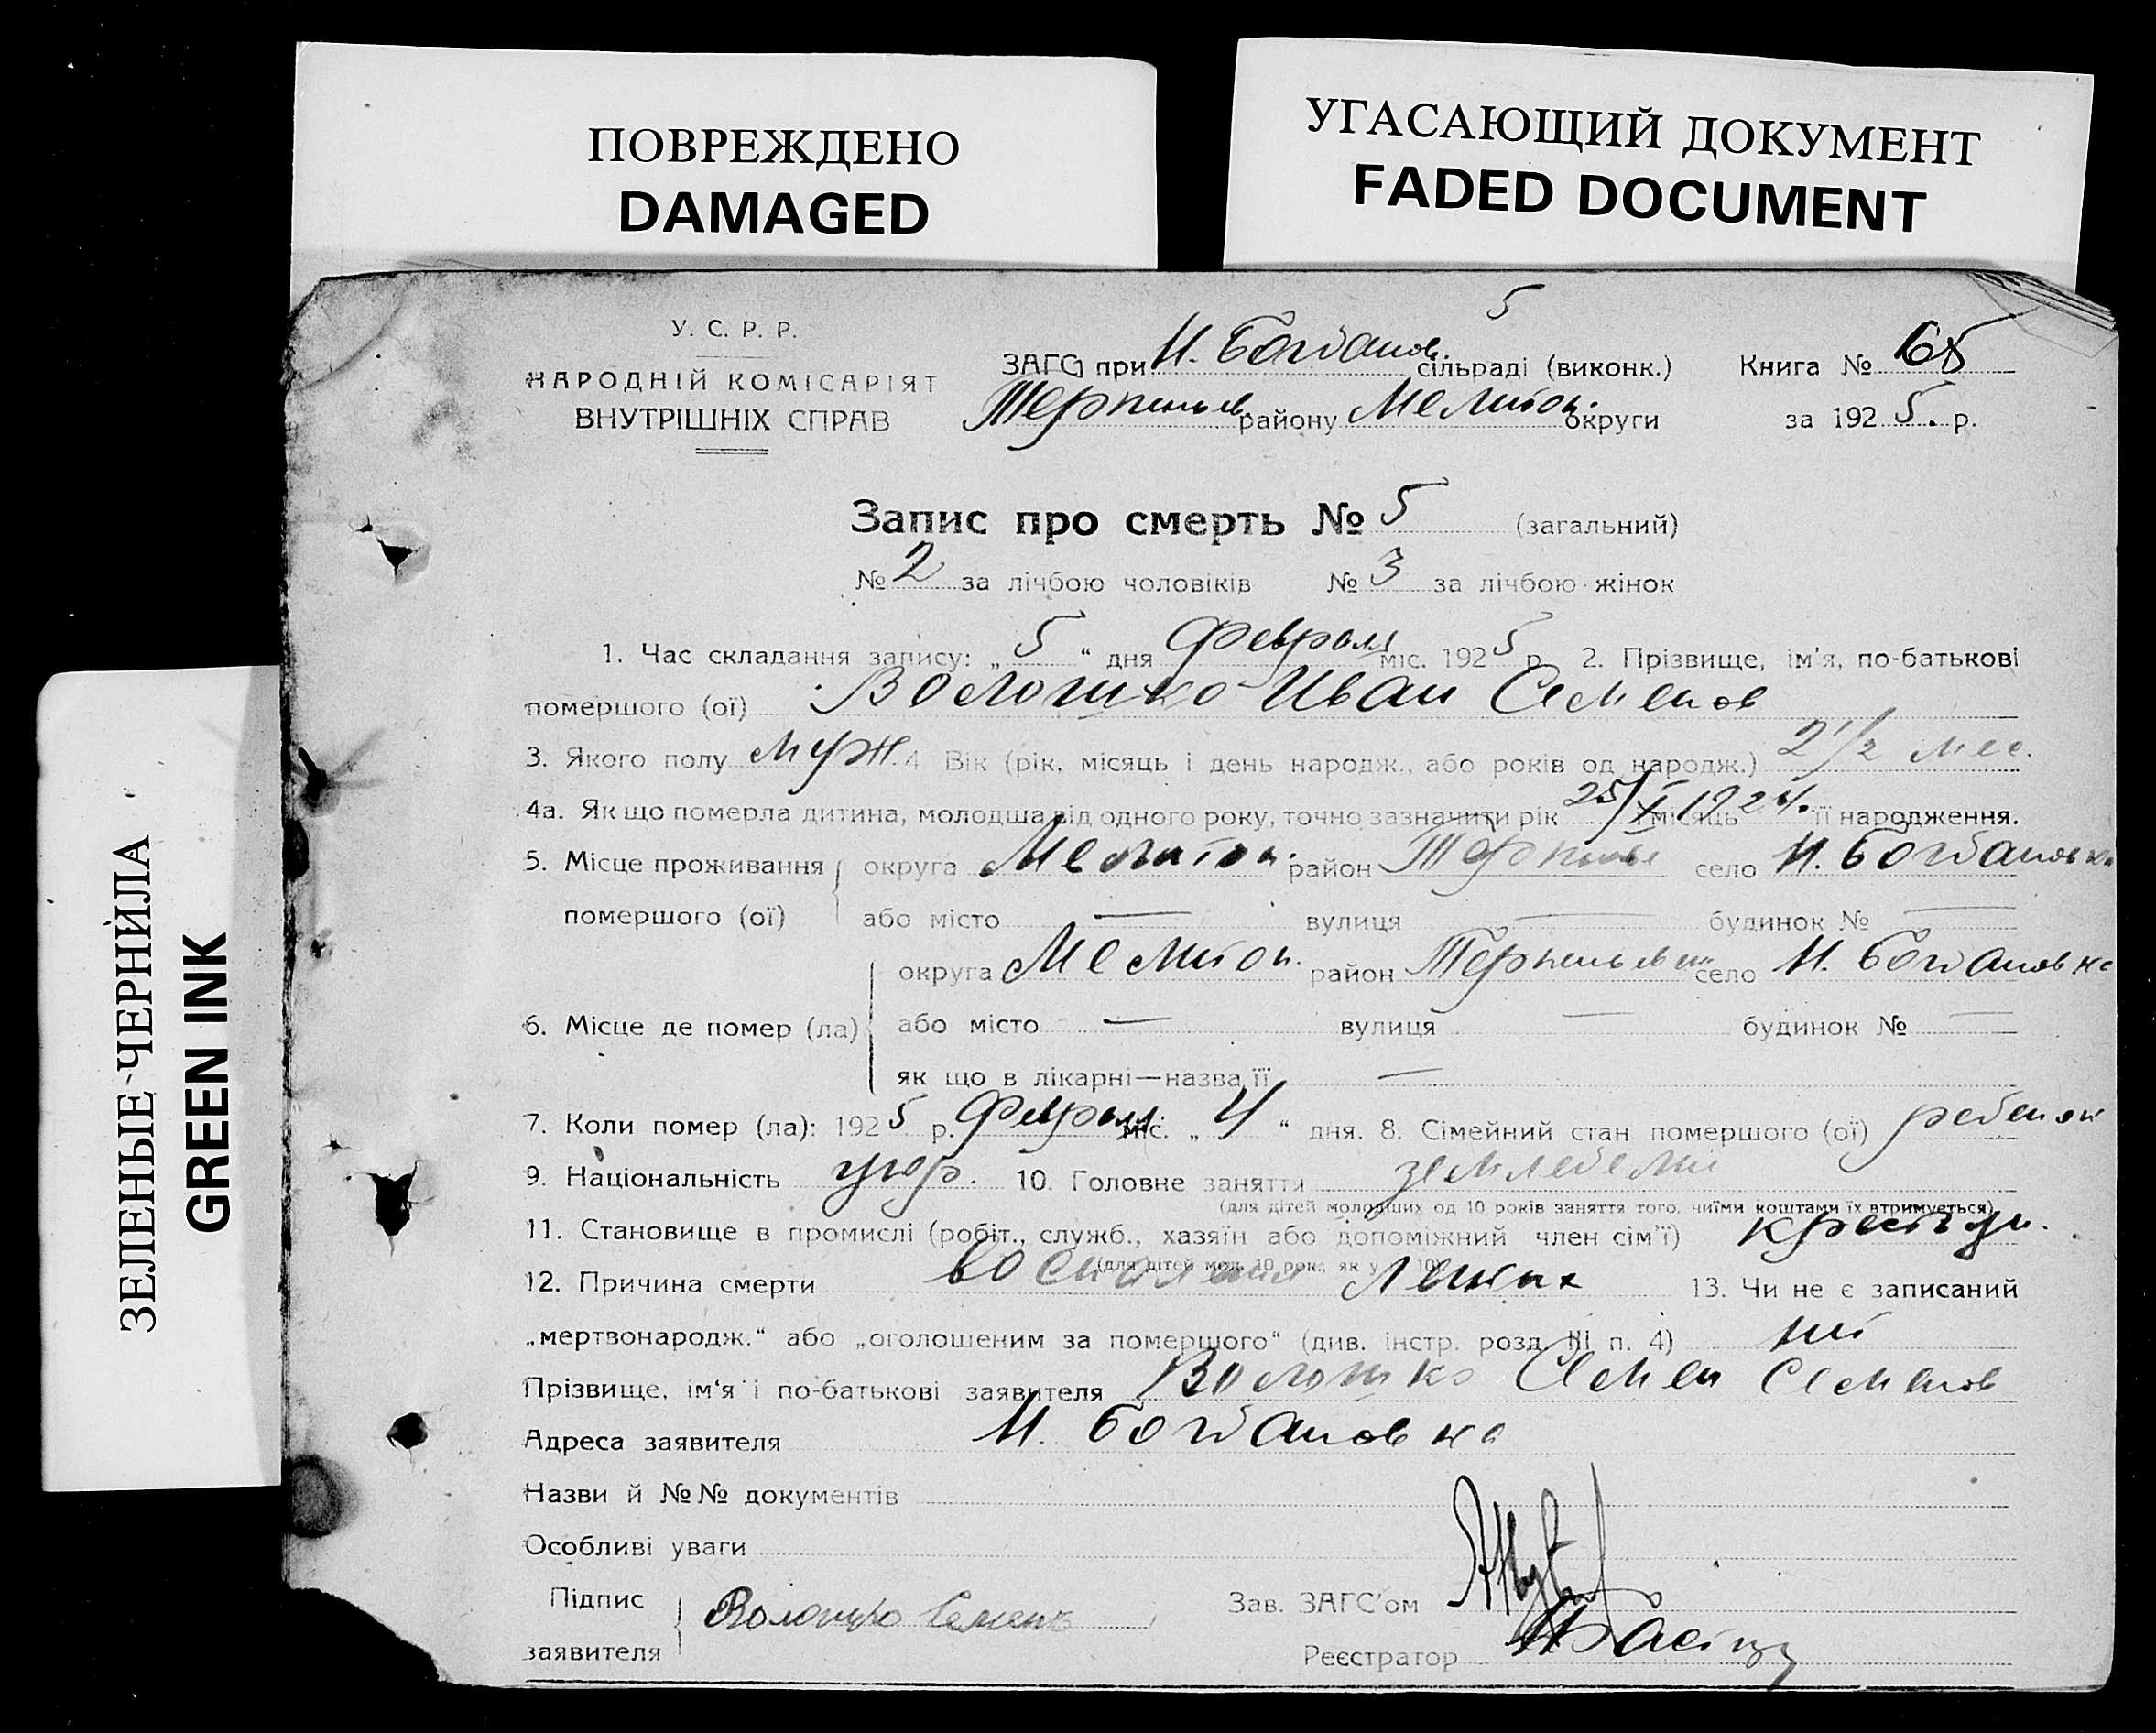 ПОВРЕЖДЕНО
DAMAGED
УГАСАЮЩИЙ ДОКУМЕНТ
FADED DOCUMENT
ЗЕЛЕНЫЕ ЧЕРНИЛА
GREEN INK
5
У. С. Р. Р.
НАРОДНІЙ КОМІСАРІЯТ
ВНУТРІШНІХ СПРАВ
ЗАГС при Н. Богданов. сільраді (виконк.) Книга №
району Мелитоп. округи за 1925. р.
Запис про смерть № 5 (загальний)
№ 2 за лічбою чоловіків № 3 за лічбою жінок
1. Час складання запису: „5“ дня Февраля міс. 1925 р. 2. Прізвище, ім'я, по-батькові
помершого (ої) Волошко Иван Семенов
3. Якого полу муж. 4 Вік (рік, місяць і день народж., або років од народж.) 2 1/2 мес.
4а. Як що померла дитина, молодша від одного року, точно зазначити рік 25/X 1924. місяць її народження.
5. Місце проживання округа Мелитоп. район село Н. Богдановка
помершого (ої) або місто — вулиця — будинок № —
округа Мелитоп. район село Н. Богдановка
6. Місце де помер (ла) або місто — вулиця — будинок № —
як що в лікарні—назва її —
7. Коли помер (ла): 1925 р. Февраля міс. „4“ дня. 8. Сімейний стан помершого (ої) ребенок
9. Національність укр. 10. Головне заняття земледели
(для дітей молодших од 10 років заняття того, чиїми коштами їх втримується)
11. Становище в промислі (робіт., служб., хазяїн або допоміжний член сім'ї) крестян.
(для дітей мол. 10 рок., як у п. 10)
12. Причина смерти воспаления Легких 13. Чи не є записаний
„мертвонародж.“ або „оголошеним за померщого“ (див. інстр. розд. III п. 4) ні
Прізвище, ім'я і по-батькові заявителя Волошко Семен Семенов
Адреса заявителя Н. Богдановка
Назви й №№ документів
Особливі уваги
Підпис
заявителя Волошко Семен
Зав. ЗАГС'ом
Реєстратор